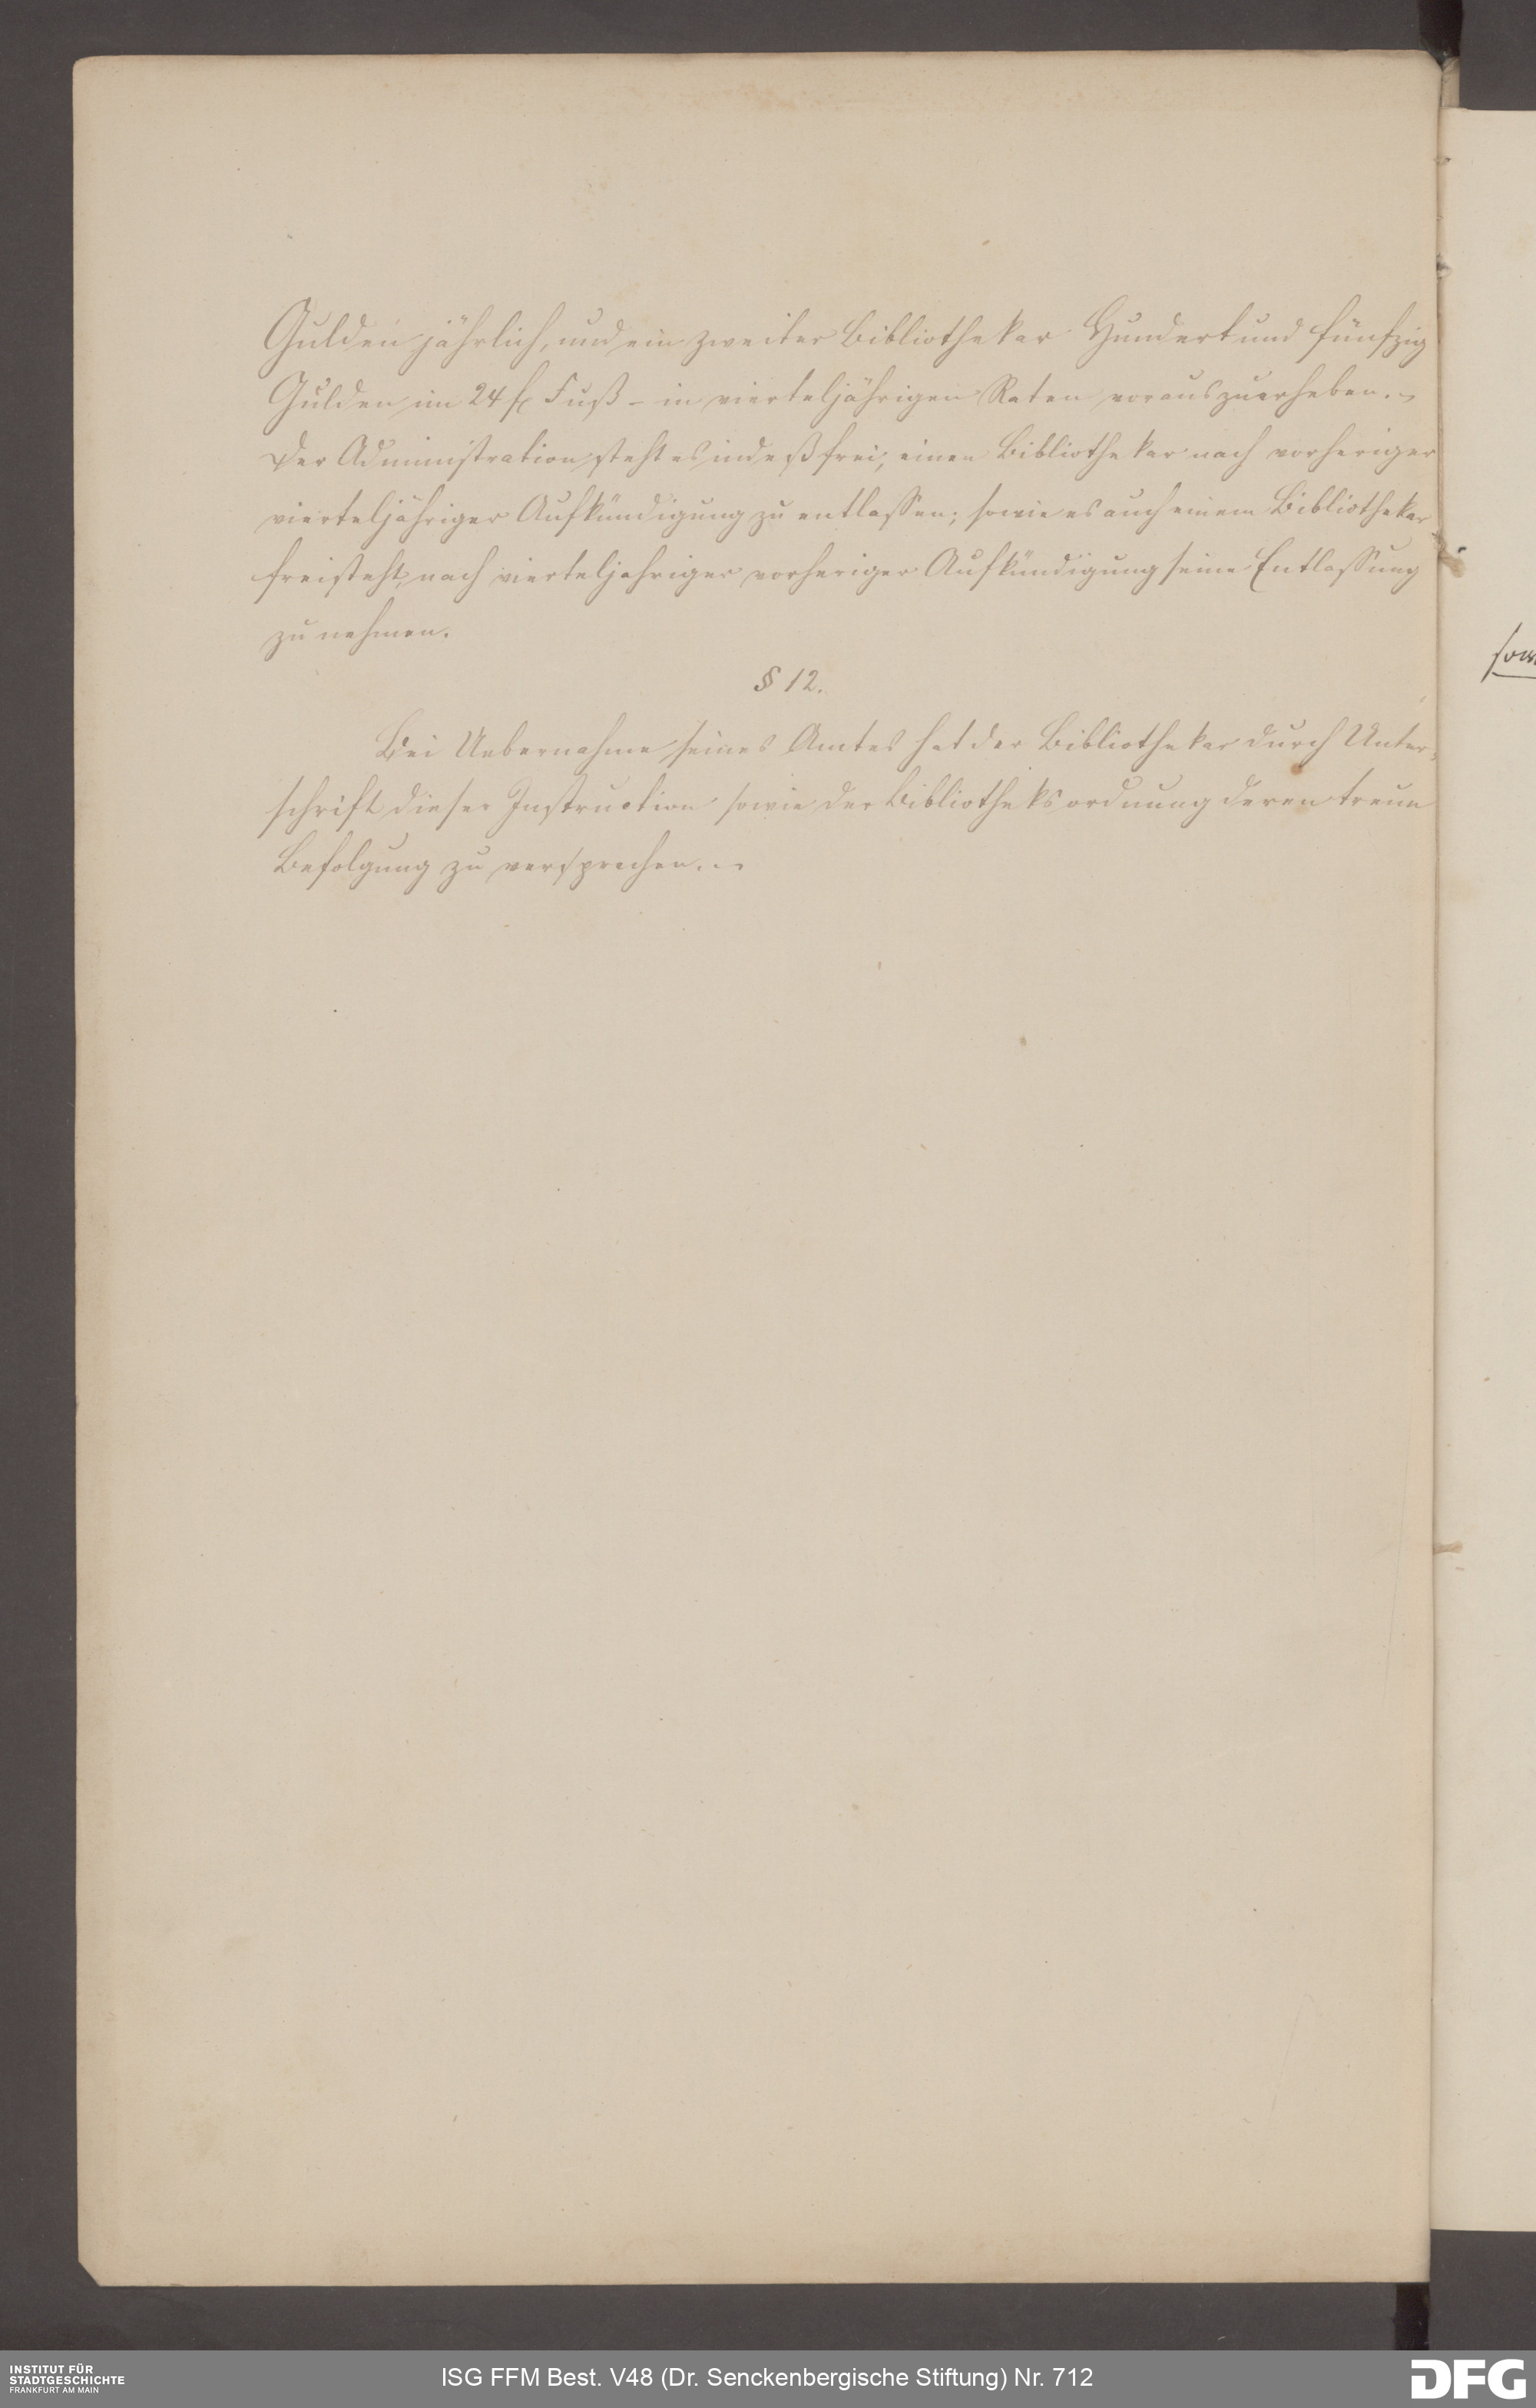 Gulden jährlich, und ein zweiter Bibliothekar Hundert und fünfzig
Gulden im 24 f Fuß - in vierteljährigen Raten vorauszuerheben. -
Der Administration steht es indeß frei, einen Bibliothekar nach vorheriger
vierteljähriger Aufkündigung zu entlassen; sowie es auch einem Bibliothekar
freisteht, nach vierteljahriger vorheriger Aufkündigung seine Entlassung
zu nehmen.
§ 12.
Bei Uebernahme seines Amtes hat der Bibliothekar durch Unter-
schrift dieser Instruction sowie der Bibliotheksordnung deren treue
Befolgung zu versprechen. -
INSTITUT FÜR
STADTGESCHICHTE
FRANKFURT AM MAIN
ISG FFM Best. V48 (Dr. Senckenbergische Stiftung) Nr. 712
DFG